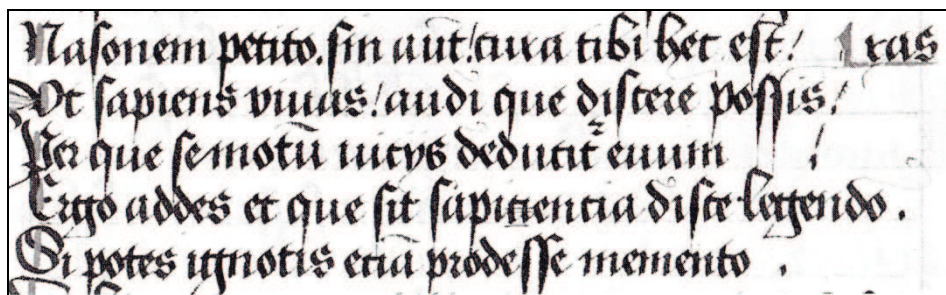 Nasonem petito. sin aut̄/ cura tibi hec est/ Lr̄as
Vt sapiens viuas/ audi que discere possis/
Per que semotū vicijs deducit᷑ euum /
Ergo addes et que sit sapiencia disce legendo .
Si potes ignotis eciā prodesse memento .